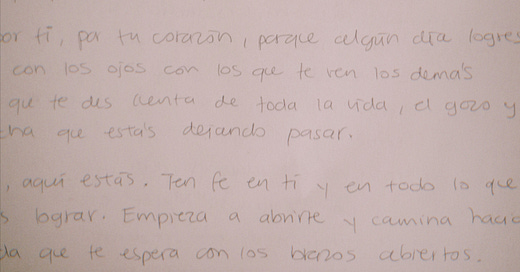 or ti, por tu corazón, porque algún día logres
con los ojos con los que te ven los demás
que te des cuenta de toda la vida, el gozo y
cha que estás dejando pasar.
, aquí estás. Ten fe en ti y en todo lo que
s lograr. Empieza a abrirte y camina hacia
da que te espera con los brazos abiertos.